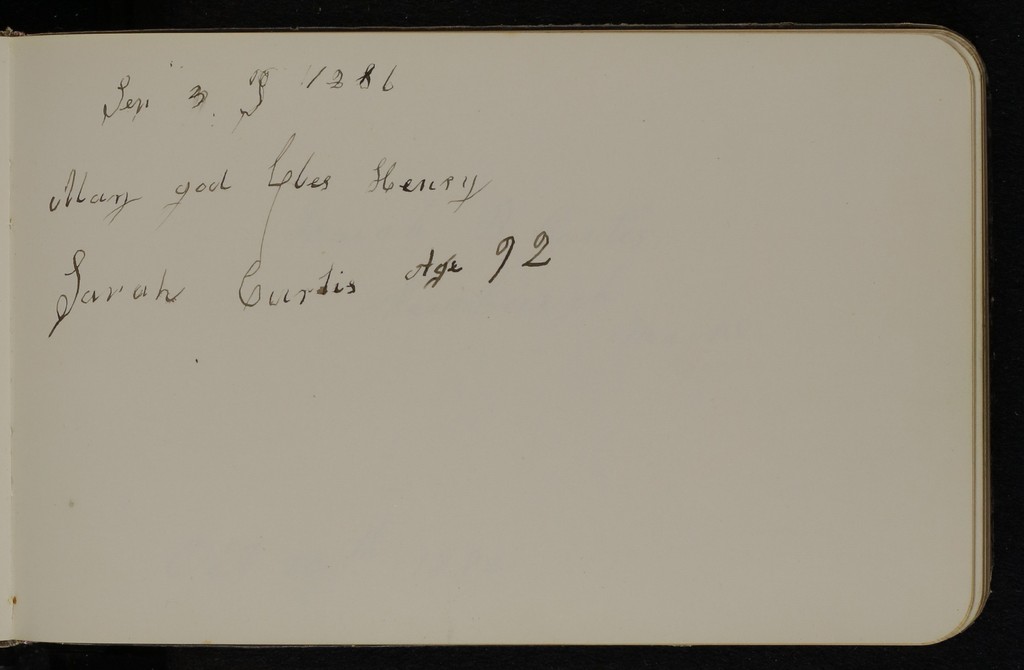 Sep 3. 1886
May god bles Henry
Sarah Curtis Age 92